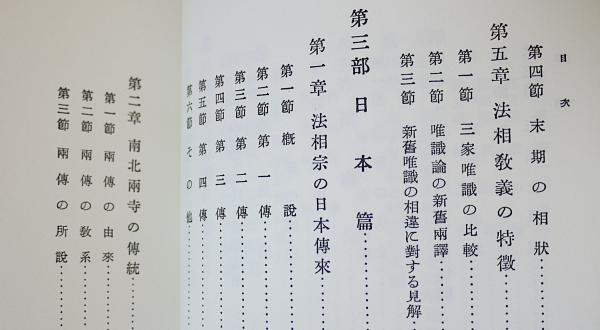 目次
第四節 末期の相狀……
第五章 法相敎義の特徵……
第一節 三家唯識の比較……
第二節 唯識論の新舊兩譯……
第三節 新舊唯識の相違に對する見解……
第三部 日本篇……
第一章 法相宗の日本傳來……
第一節 概說……
第二節 第一傳……
第三節 第二傳……
第四節 第三傳……
第五節 第四傳……
第六節 その他……
第二章 南北兩寺の傳統……
第一節 兩傳の由來……
第二節 兩傳の敎系……
第三節 兩傳の所說……